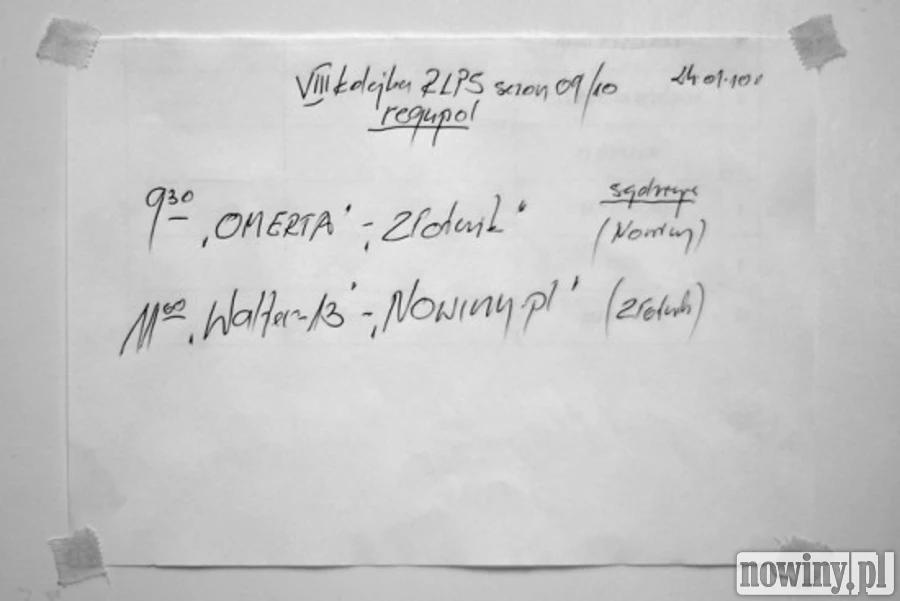 VIII kolejka ZLPS sezon 09/10 24.01.10r
regupol
9³⁰ „OMERTA" - „Złotnik" sędziuje (Nowiny)
11⁰⁰ „Walter-13" - „Nowiny.pl" (Złotnik)
nowiny.pl